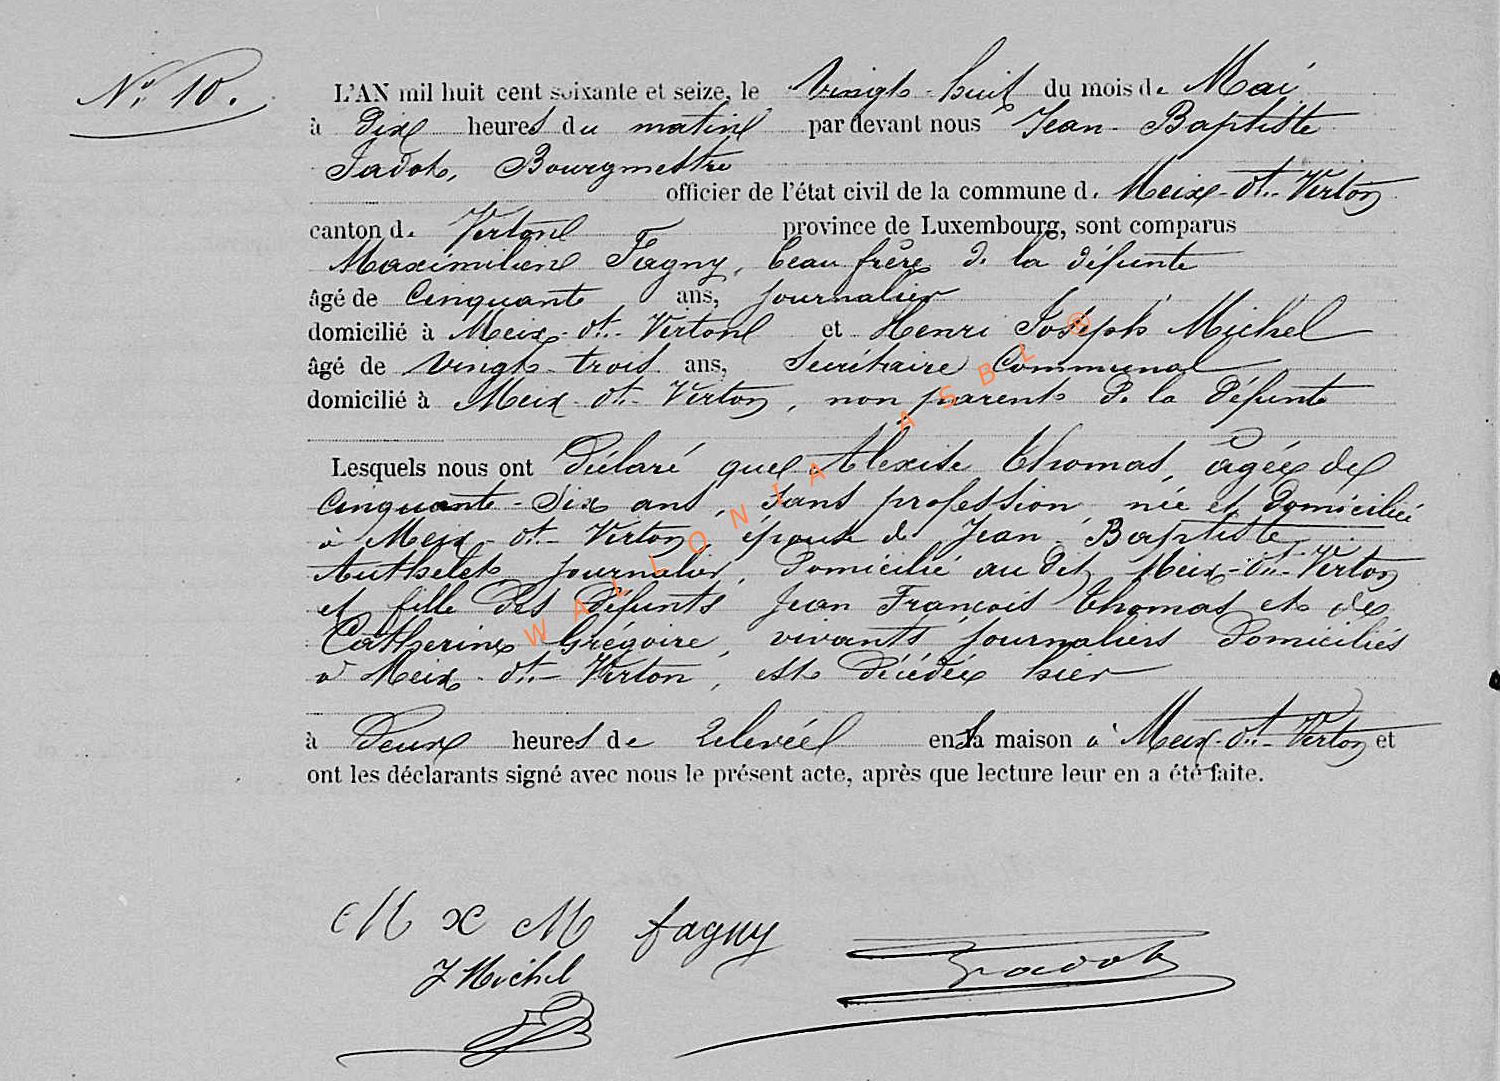 N° 10.
L'AN mil huit cent soixante et seize, le Vingt-huit du mois de Mai
à Dix heures du matin par devant nous Jean-Baptiste
Jadot, Bourgmestre
officier de l'état civil de la commune de Meix-dt-Virton
canton de Virton province de Luxembourg, sont comparus
Maximilien Fagny, beau frère de la défunte
âgé de Cinquante ans, journalier
domicilié à Meix-dt-Virton et Henri Joseph Michel
âgé de vingt-trois ans, Secrétaire Communal
domicilié à Meix-dt-Virton, non parent de la défunte
Lesquels nous ont déclaré que Alexise Thomas, âgée de
Cinquante-six ans, sans profession née et domiciliée
à Meix-dt-Virton, épouse de Jean-Baptiste
Authelet journalier, domicilié au dit Meix-dt-Virton
et fille des défunts Jean François Thomas et de
Catherine Grégoire, vivants journaliers domiciliés
à Meix-dt-Virton, est décédée hier
à Deux heures de relevée en sa maison à Meix-dt-Virton et
ont les déclarants signé avec nous le présent acte, après que lecture leur en a été faite.
M x M fagny
J Michel
Jadot
WALLONIA ASBL ®